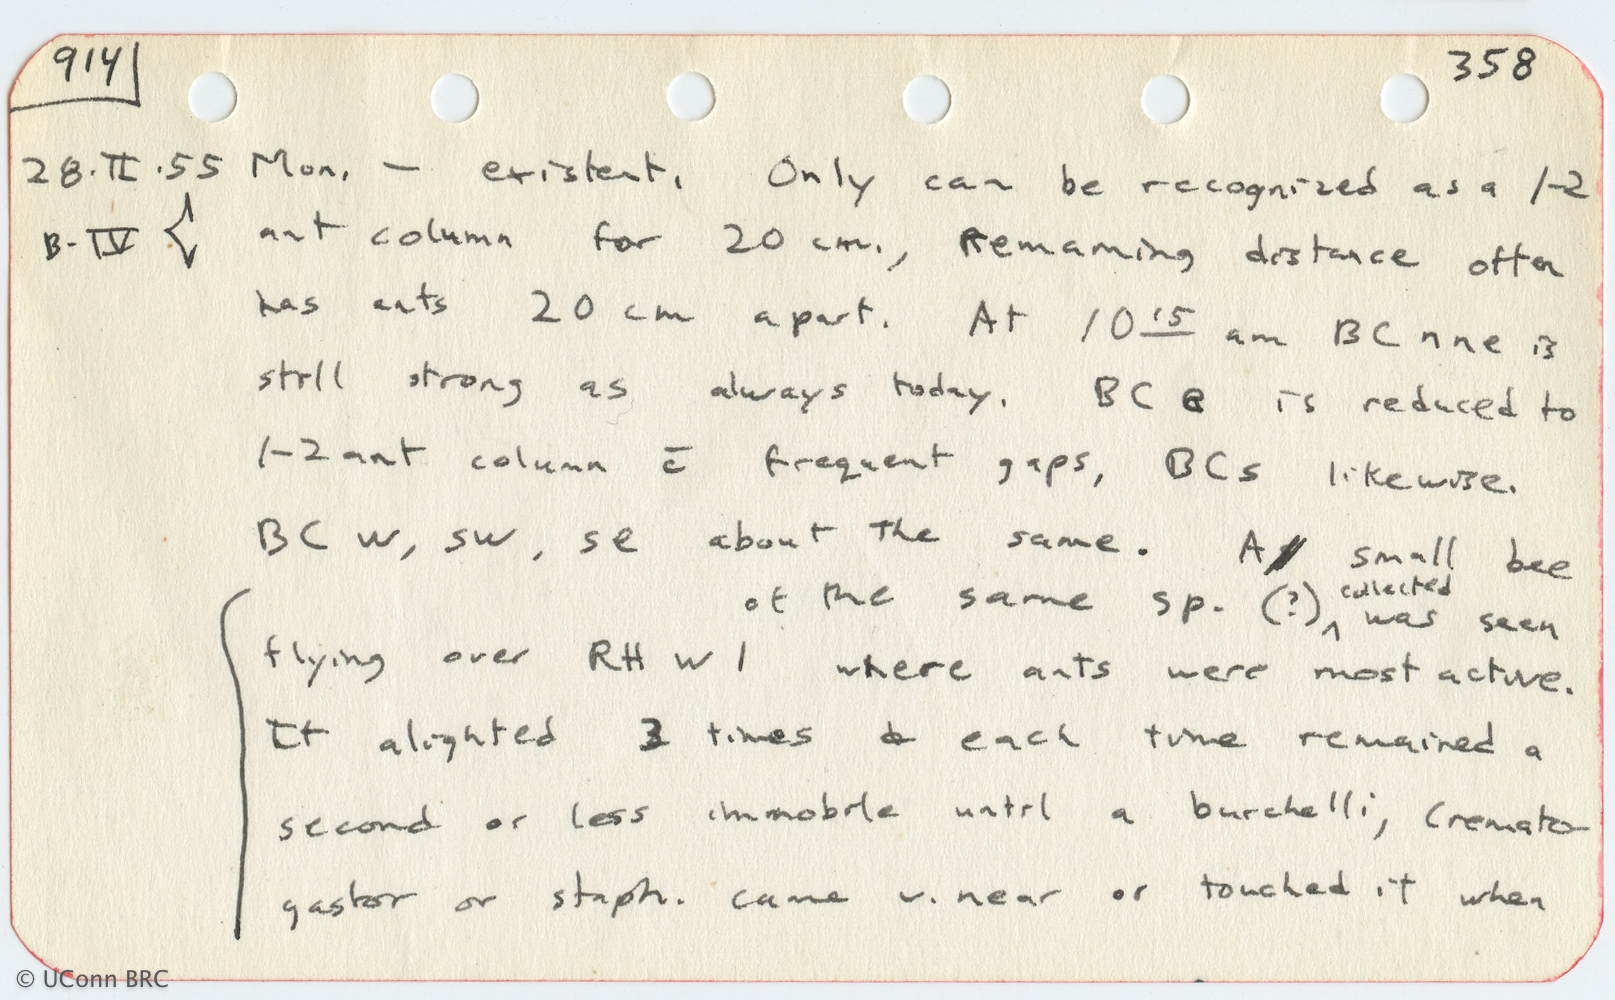 914
358
28.II.55 Mon. — existent. Only can be recognized as a 1-2
B-IV ant column for 20 cm., Remaining distance often
has ants 20 cm apart. At 10 15 am BC nne is
still strong as always today. BC e is reduced to
1-2 ant column c̄ frequent gaps, BCs likewise.
BC w, sw, se about the same. A small bee
of the same sp. (?) ^ collected was seen
flying over RH w 1 where ants were most active.
It alighted 3 times & each time remained a
second or less immobile until a burchelli, Cremato-
gaster or staph. came v. near or touched it when
© UConn BRC